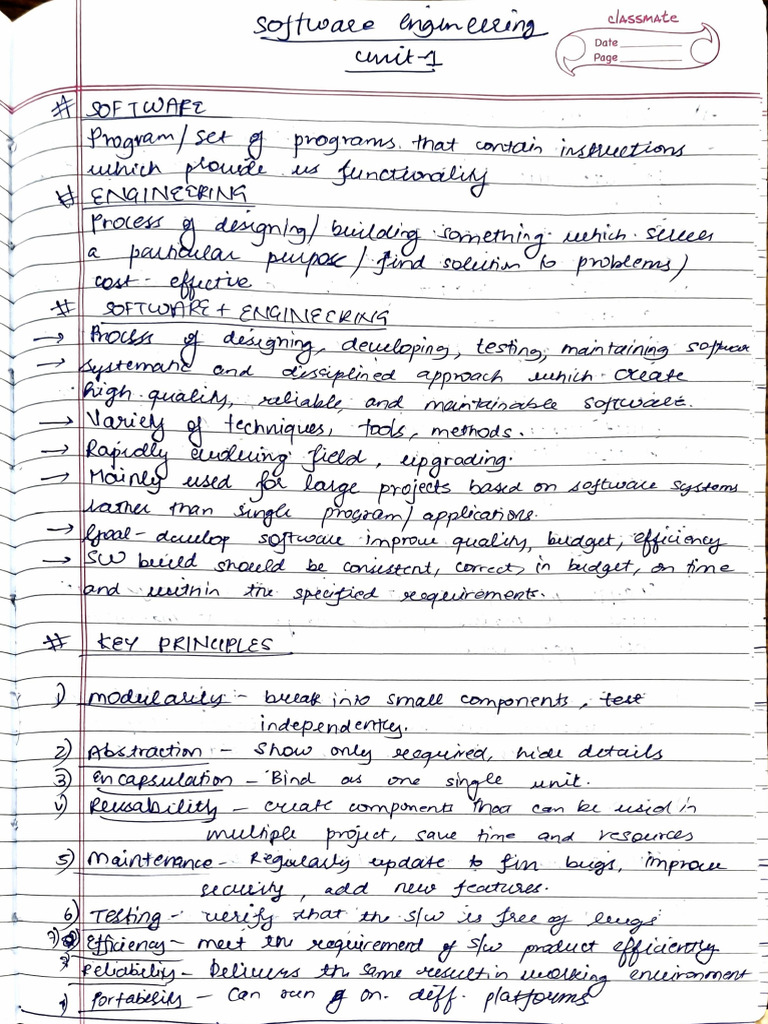 Software engineering
Unit-1
classmate
Date
Page
# SOFTWARE
Program/ set of programs that contain instructions
which provide us functionality
# ENGINEERING
Process of designing/ building something which serves
a particular purpose/ find solution to problems/
cost-effective
# SOFTWARE + ENGINEERING
→ Process of designing, developing, testing, maintaining software
→ systematic and disciplined approach which create
high quality, reliable, and maintainable software.
→ Variety of techniques, tools, methods.
→ Rapidly evolving field, upgrading.
→ Mainly used for large projects based on software systems
rather than single program/ applications.
→ Goal- develop software improve quality, budget, efficiency
→ SW build should be consistent, correct, in budget, on time
and within the specified requirements.
# KEY PRINCIPLES
1) modularity - break into small components, test
independently.
2) Abstraction - Show only required, hide details
3) Encapsulation - Bind as one single unit.
4) Reusability - create components that can be used in
multiple project, save time and resources
5) Maintenance - Regularly update to fix bugs, improve
security, add new features.
6) Testing - verify that the s/w is free of bugs
7) Efficiency - meet the requirement of s/w product efficiently
Reliability - Delivers the same result in working environment
Portability - Can run on diff. platforms